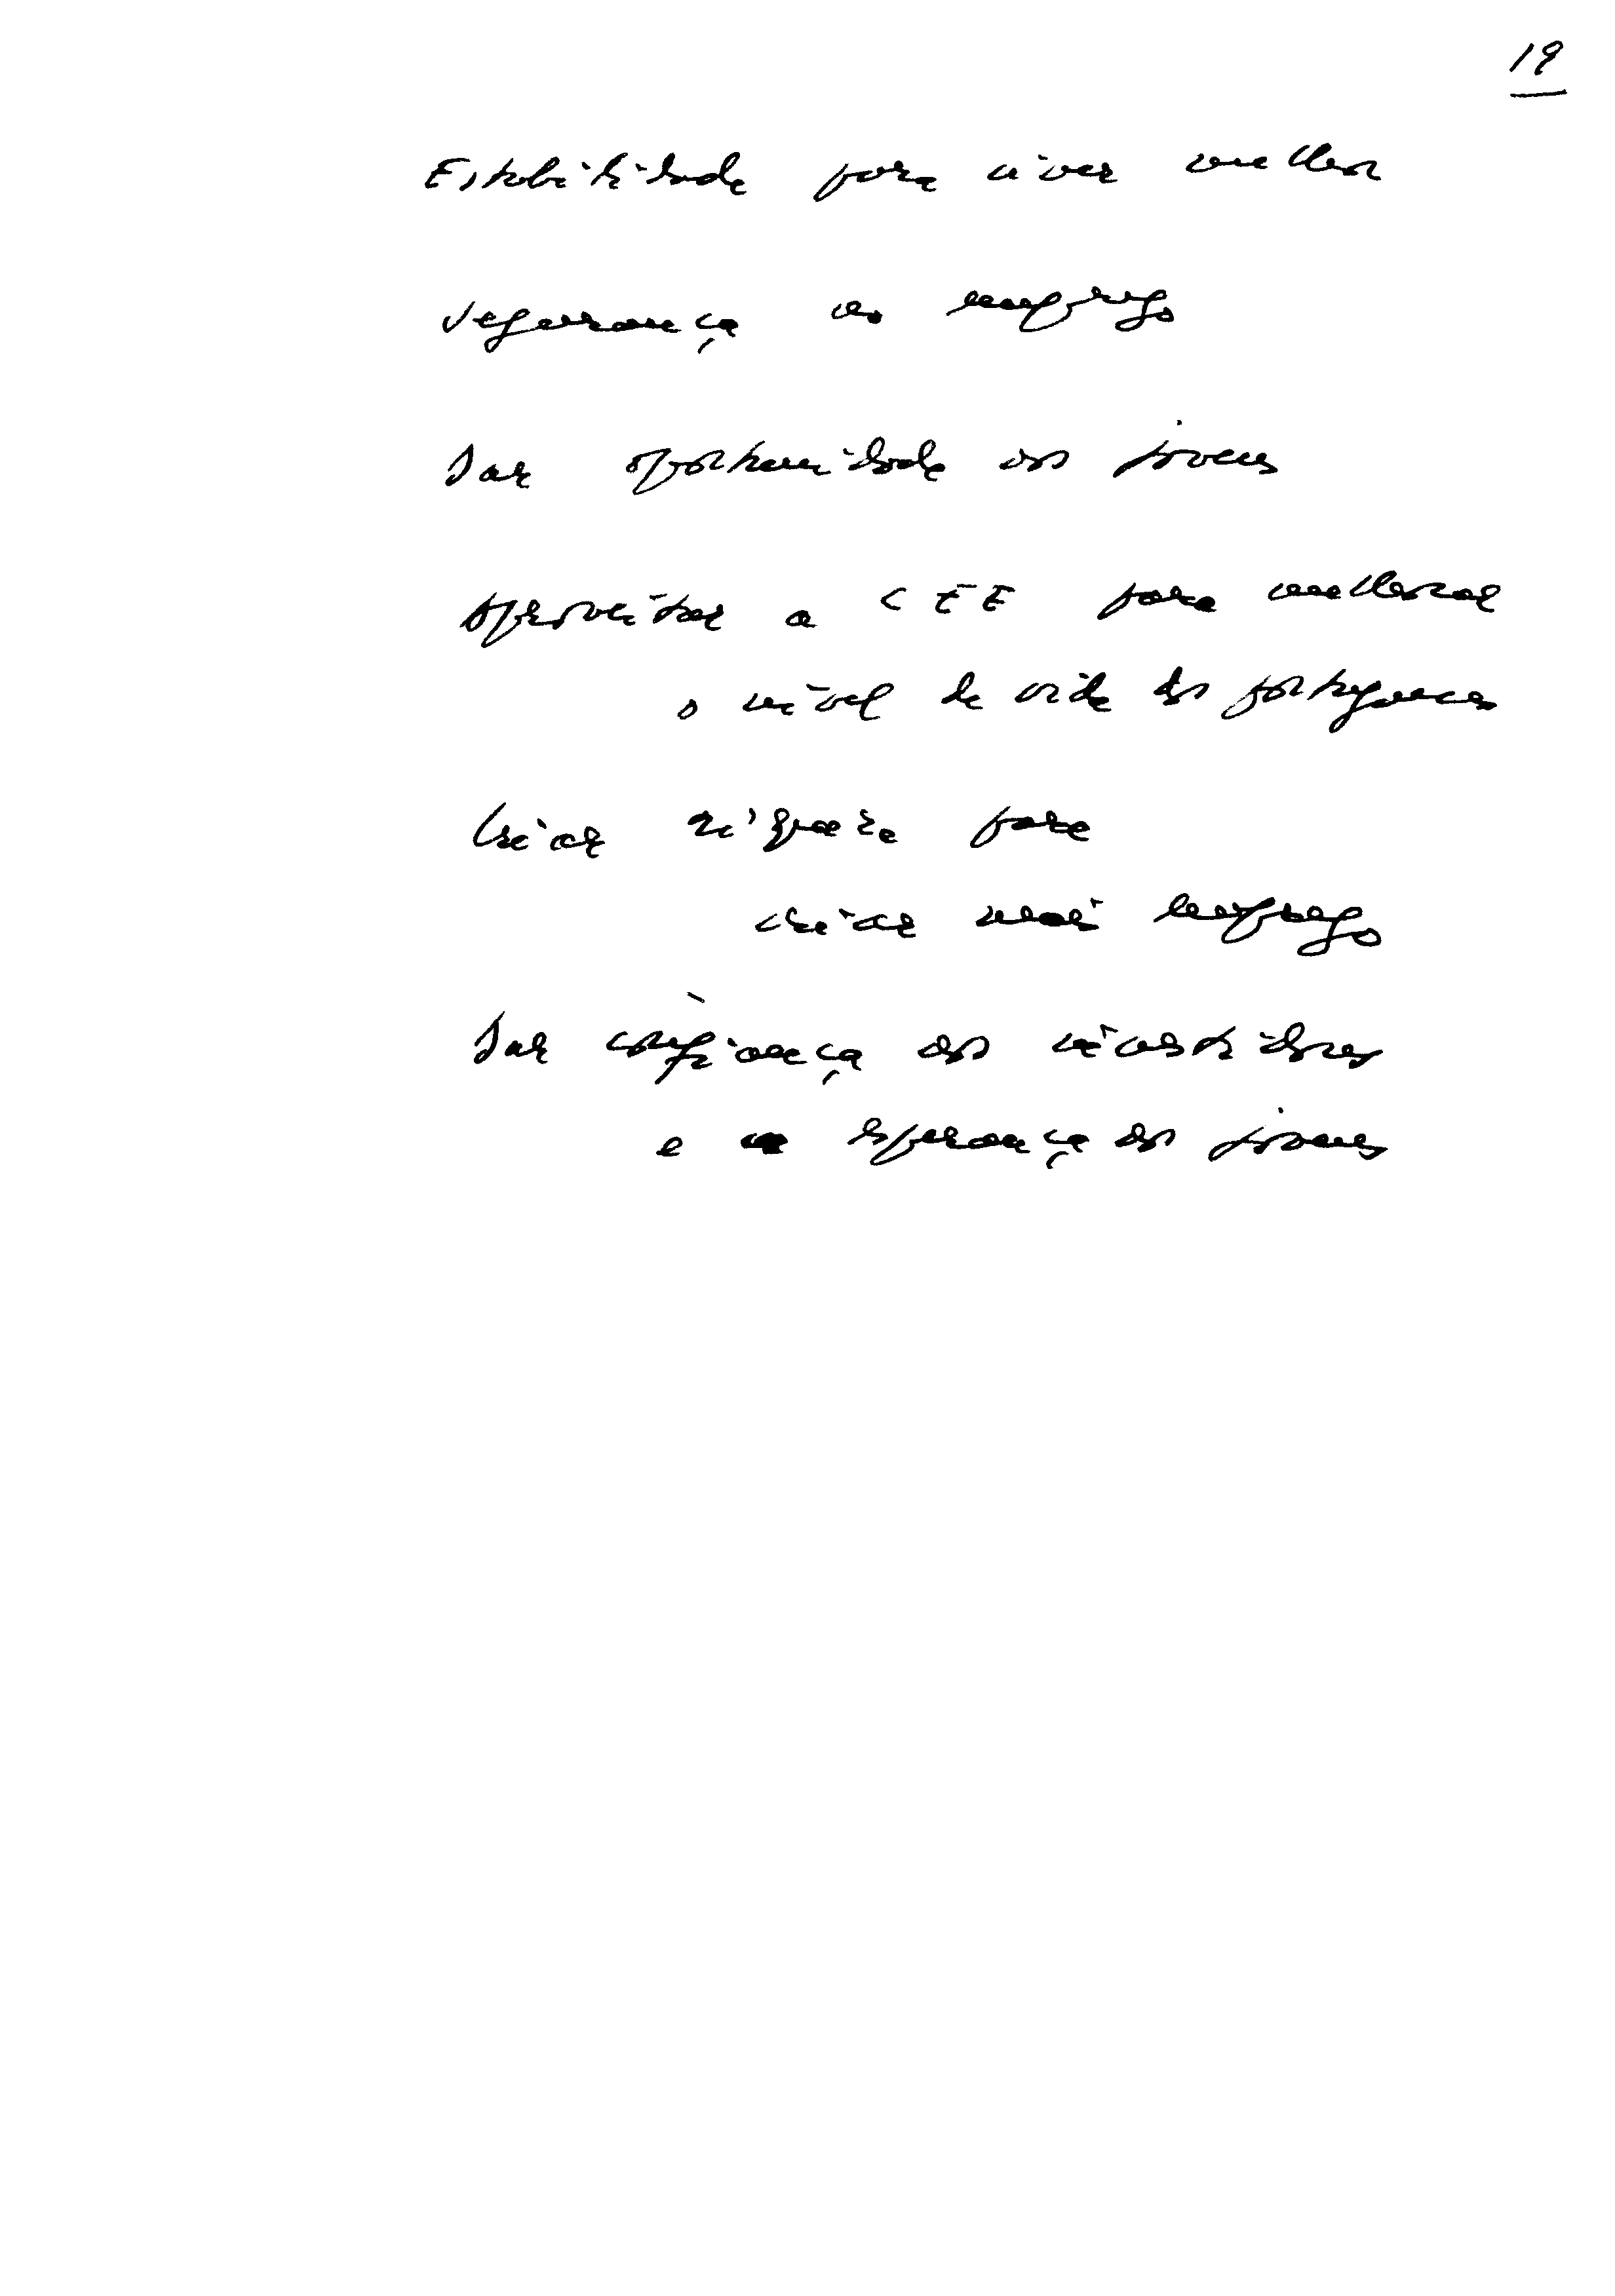 19
Estabilidade para viver melhor
Segurança no emprego
Dar oportunidade aos jovens
Aproveitar a CEE para melhorar
o nível de vida dos portugueses
Criar riqueza para
criar mais emprego
Dar confiança aos investidores
e esperança aos jovens